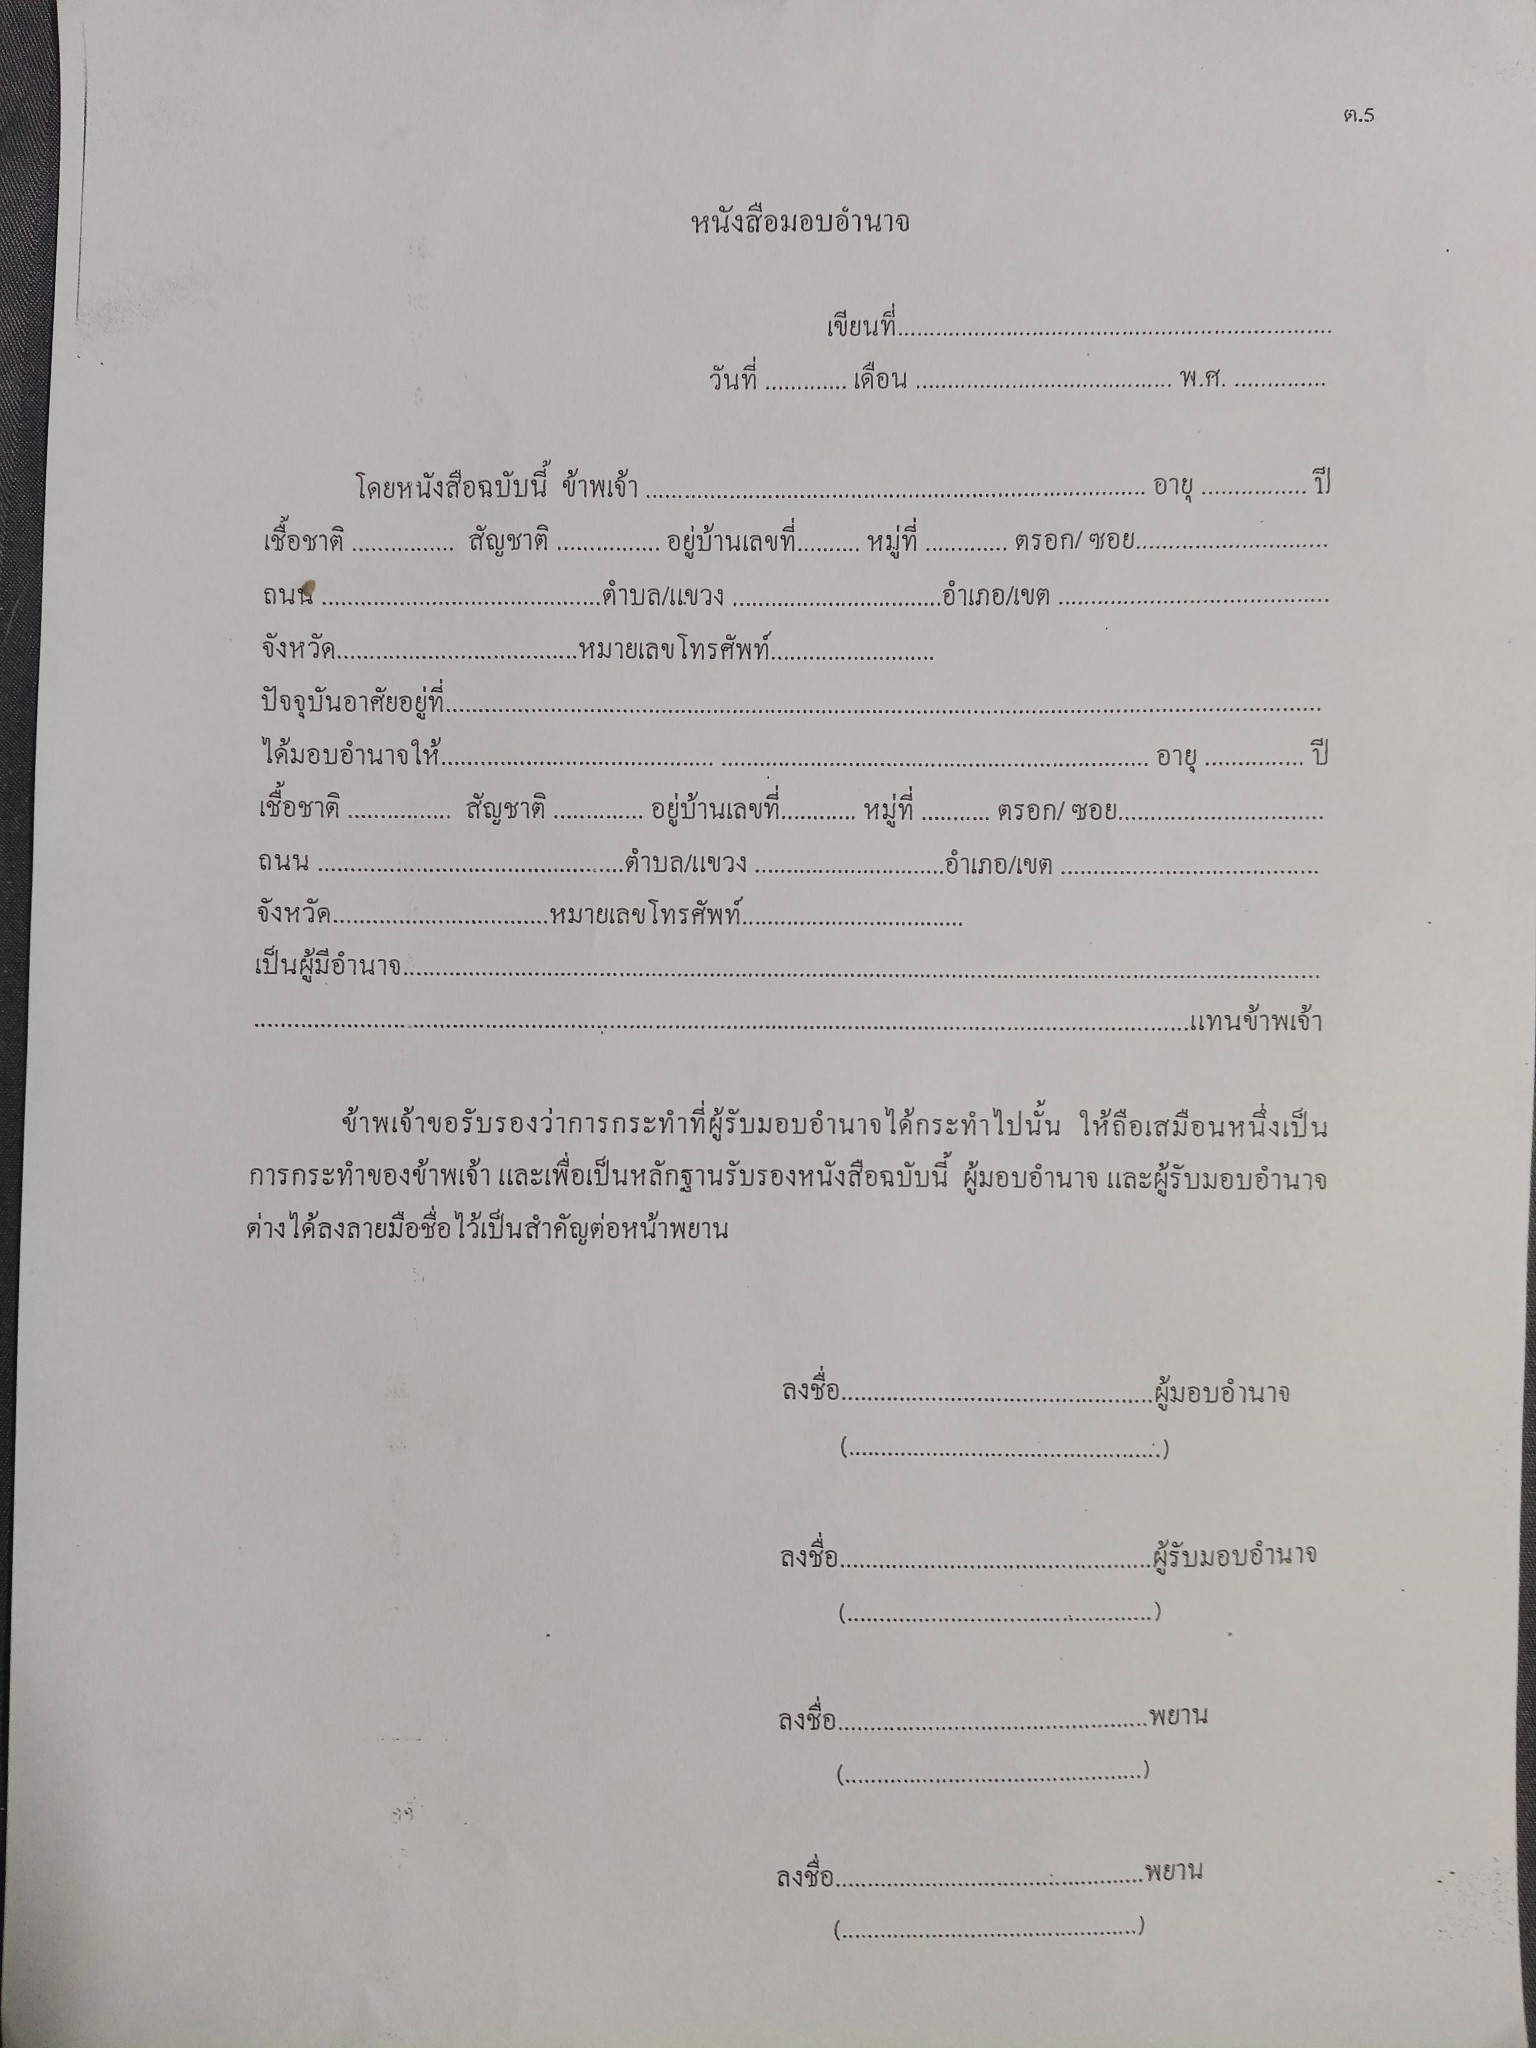 ต.5
หนังสือมอบอำนาจ
เขียนที่....................................................................
วันที่ ............. เดือน ........................................ พ.ศ. ..............
โดยหนังสือฉบับนี้ ข้าพเจ้า .............................................................................. อายุ ................ ปี
เชื้อชาติ ................ สัญชาติ ................ อยู่บ้านเลขที่.......... หมู่ที่ ............. ตรอก/ ซอย..............................
ถนน ............................................ตำบล/แขวง .................................อำเภอ/เขต ..........................................
จังหวัด.....................................หมายเลขโทรศัพท์.........................
ปัจจุบันอาศัยอยู่ที่........................................................................................................................................
ได้มอบอำนาจให้.......................................... .................................................................. อายุ ............... ปี
เชื้อชาติ ................ สัญชาติ .............. อยู่บ้านเลขที่............ หมู่ที่ ........... ตรอก/ ซอย................................
ถนน ................................................ตำบล/แขวง .............................อำเภอ/เขต ........................................
จังหวัด.................................หมายเลขโทรศัพท์..................................
เป็นผู้มีอำนาจ..............................................................................................................................................
..................................................................................................................................................แทนข้าพเจ้า
ข้าพเจ้าขอรับรองว่าการกระทำที่ผู้รับมอบอำนาจได้กระทำไปนั้น ให้ถือเสมือนหนึ่งเป็น
การกระทำของข้าพเจ้า และเพื่อเป็นหลักฐานรับรองหนังสือฉบับนี้ ผู้มอบอำนาจ และผู้รับมอบอำนาจ
ต่างได้ลงลายมือชื่อไว้เป็นสำคัญต่อหน้าพยาน
ลงชื่อ.................................................ผู้มอบอำนาจ
(.................................................)
ลงชื่อ.................................................ผู้รับมอบอำนาจ
(................................................)
ลงชื่อ.................................................พยาน
(...............................................)
ลงชื่อ.................................................พยาน
(...............................................)